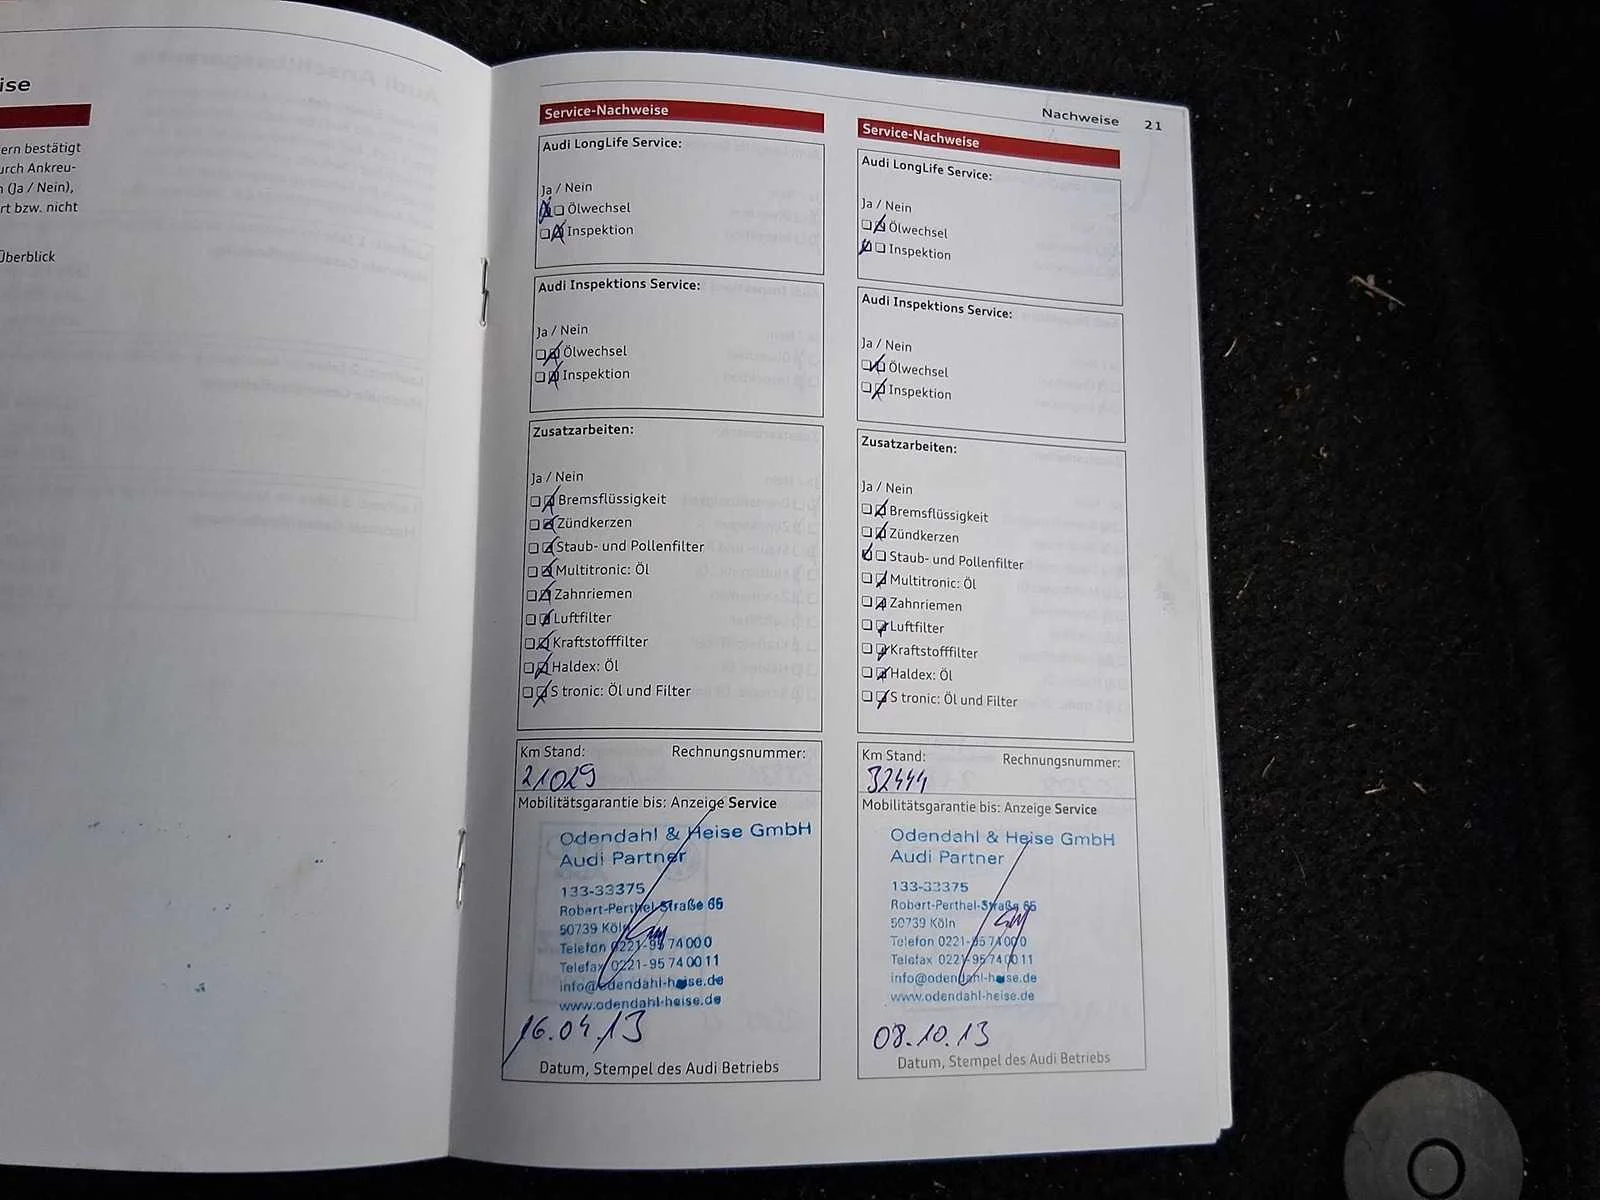 ise
ern bestätigt
urch Ankreu-
n (Ja / Nein),
rt bzw. nicht
Überblick
Nachweise 21
Service-Nachweise
Audi LongLife Service:
Ja / Nein
Ölwechsel
Inspektion
Audi Inspektions Service:
Ja / Nein
Ölwechsel
Inspektion
Zusatzarbeiten:
Ja / Nein
Bremsflüssigkeit
Zündkerzen
Staub- und Pollenfilter
Multitronic: Öl
Zahnriemen
Luftfilter
Kraftstofffilter
Haldex: Öl
S tronic: Öl und Filter
Km Stand: Rechnungsnummer:
21029
Mobilitätsgarantie bis: Anzeige Service
Odendahl & Heise GmbH
Audi Partner
133-33375
Robert-Perthel-Straße 65
50739 Köln
Telefon 0221-95 74 00 0
Telefax 0221-95 74 00 11
info@odendahl-heise.de
www.odendahl-heise.de
16.04.13
Datum, Stempel des Audi Betriebs
Service-Nachweise
Audi LongLife Service:
Ja / Nein
Ölwechsel
Inspektion
Audi Inspektions Service:
Ja / Nein
Ölwechsel
Inspektion
Zusatzarbeiten:
Ja / Nein
Bremsflüssigkeit
Zündkerzen
Staub- und Pollenfilter
Multitronic: Öl
Zahnriemen
Luftfilter
Kraftstofffilter
Haldex: Öl
S tronic: Öl und Filter
Km Stand: Rechnungsnummer:
32444
Mobilitätsgarantie bis: Anzeige Service
Odendahl & Heise GmbH
Audi Partner
133-33375
Robert-Perthel-Straße 65
50739 Köln
Telefon 0221-95 74 00 0
Telefax 0221-95 74 00 11
info@odendahl-heise.de
www.odendahl-heise.de
08.10.13
Datum, Stempel des Audi Betriebs